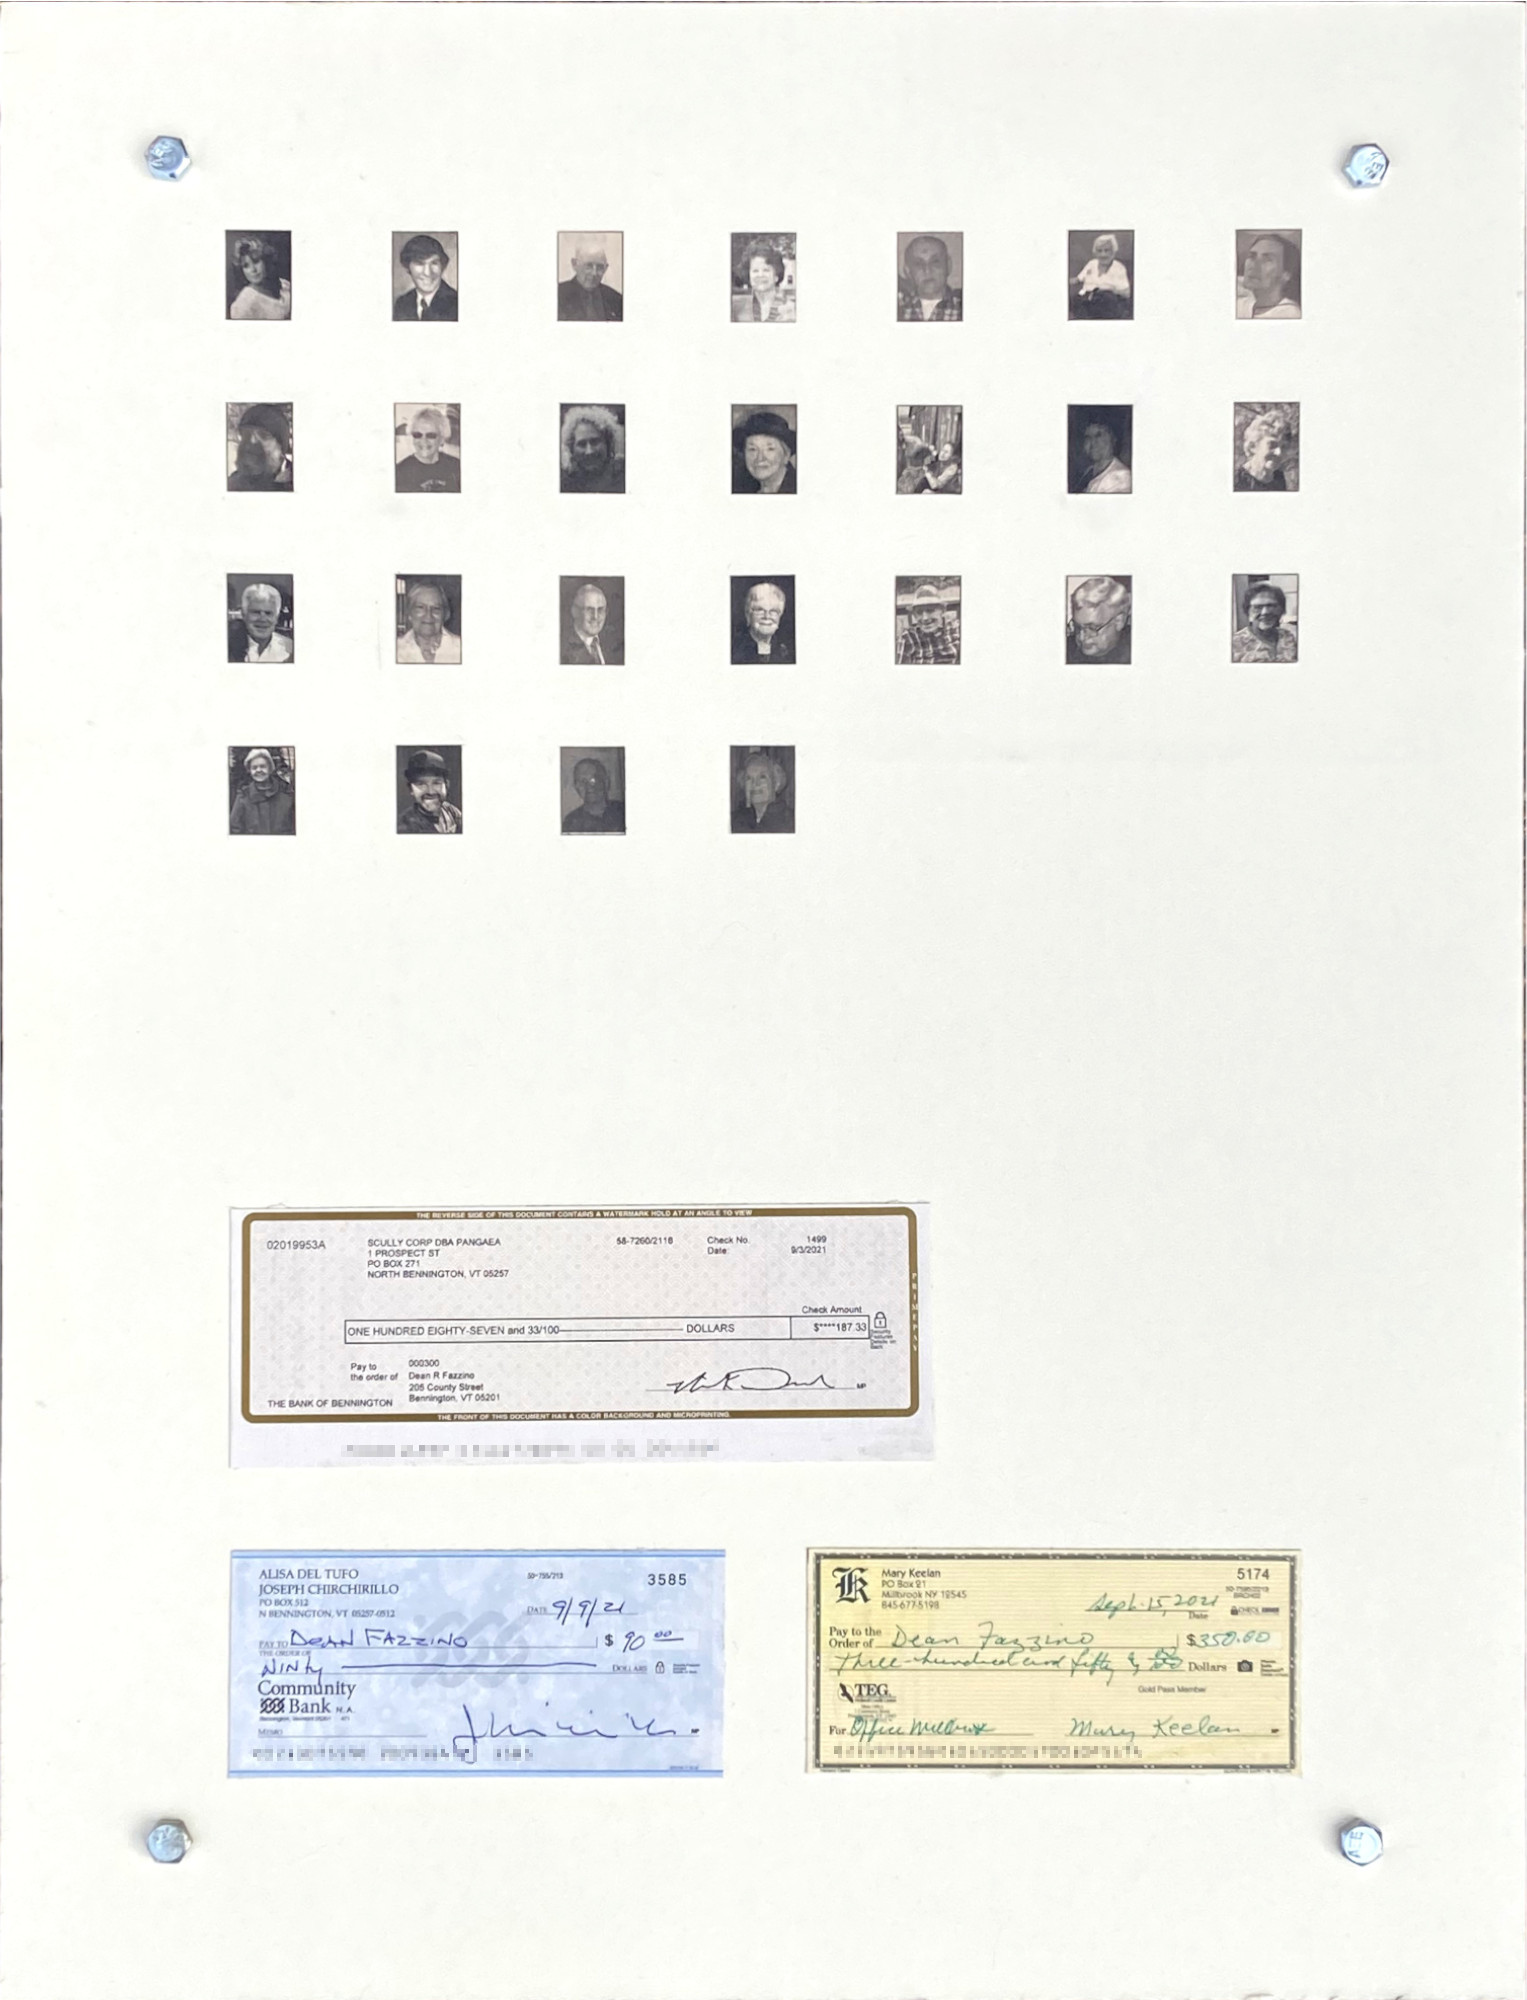 THE REVERSE SIDE OF THIS DOCUMENT CONTAINS A WATERMARK HOLD AT AN ANGLE TO VIEW
02019953A
SCULLY CORP DBA PANGAEA
1 PROSPECT ST
PO BOX 271
NORTH BENNINGTON, VT 05257
58-7260/2118
Check No. 1499
Date: 9/3/2021
PRIMEPAY
Check Amount
ONE HUNDRED EIGHTY-SEVEN and 33/100 DOLLARS $****187.33
Security
Features
Details on
Back
Pay to
the order of
000300
Dean R Fazzino
205 County Street
Bennington, VT 05201
MP
THE BANK OF BENNINGTON
THE FRONT OF THIS DOCUMENT HAS A COLOR BACKGROUND AND MICROPRINTING.
ALISA DEL TUFO
JOSEPH CHIRCHIRILLO
PO BOX 512
N BENNINGTON, VT 05257-0512
3585
DATE 9/9/21
PAY TO
THE ORDER OF
DEAN FAZZINO $ 90 00
NINty DOLLARS
Community
Bank N.A.
MEMO
MP
3585
Mary Keelan
PO Box 91
Millbrook NY 12545
845-677-5198
5174
Sept. 15, 2021
Date
Pay to the
Order of Dean Fazzino $350.00
Three-hundred and fifty & Dollars
TEG
Gold Pass Member
For Office Millbrook Mary Keelan
MP